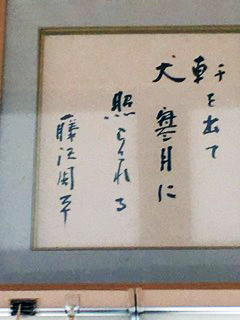 軒を出て
犬寒月に
照らされる
藤沢周平